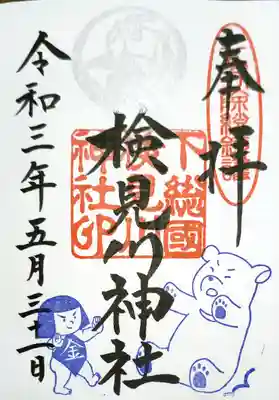 奉拝
下総國
検見川
神社印
検見川神社
令和三年五月三十一日
金